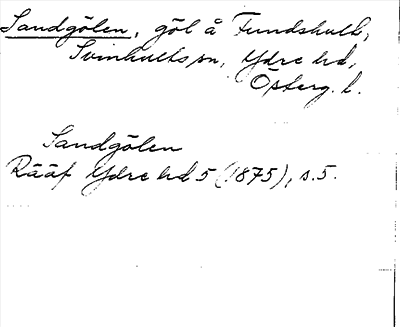 Sandgölen, göl å Fundshult,
Svinhults sn, Ydre hd,
Österg. l.
Sandgölen
Rääf Ydre hd 5 (1875), s. 5.